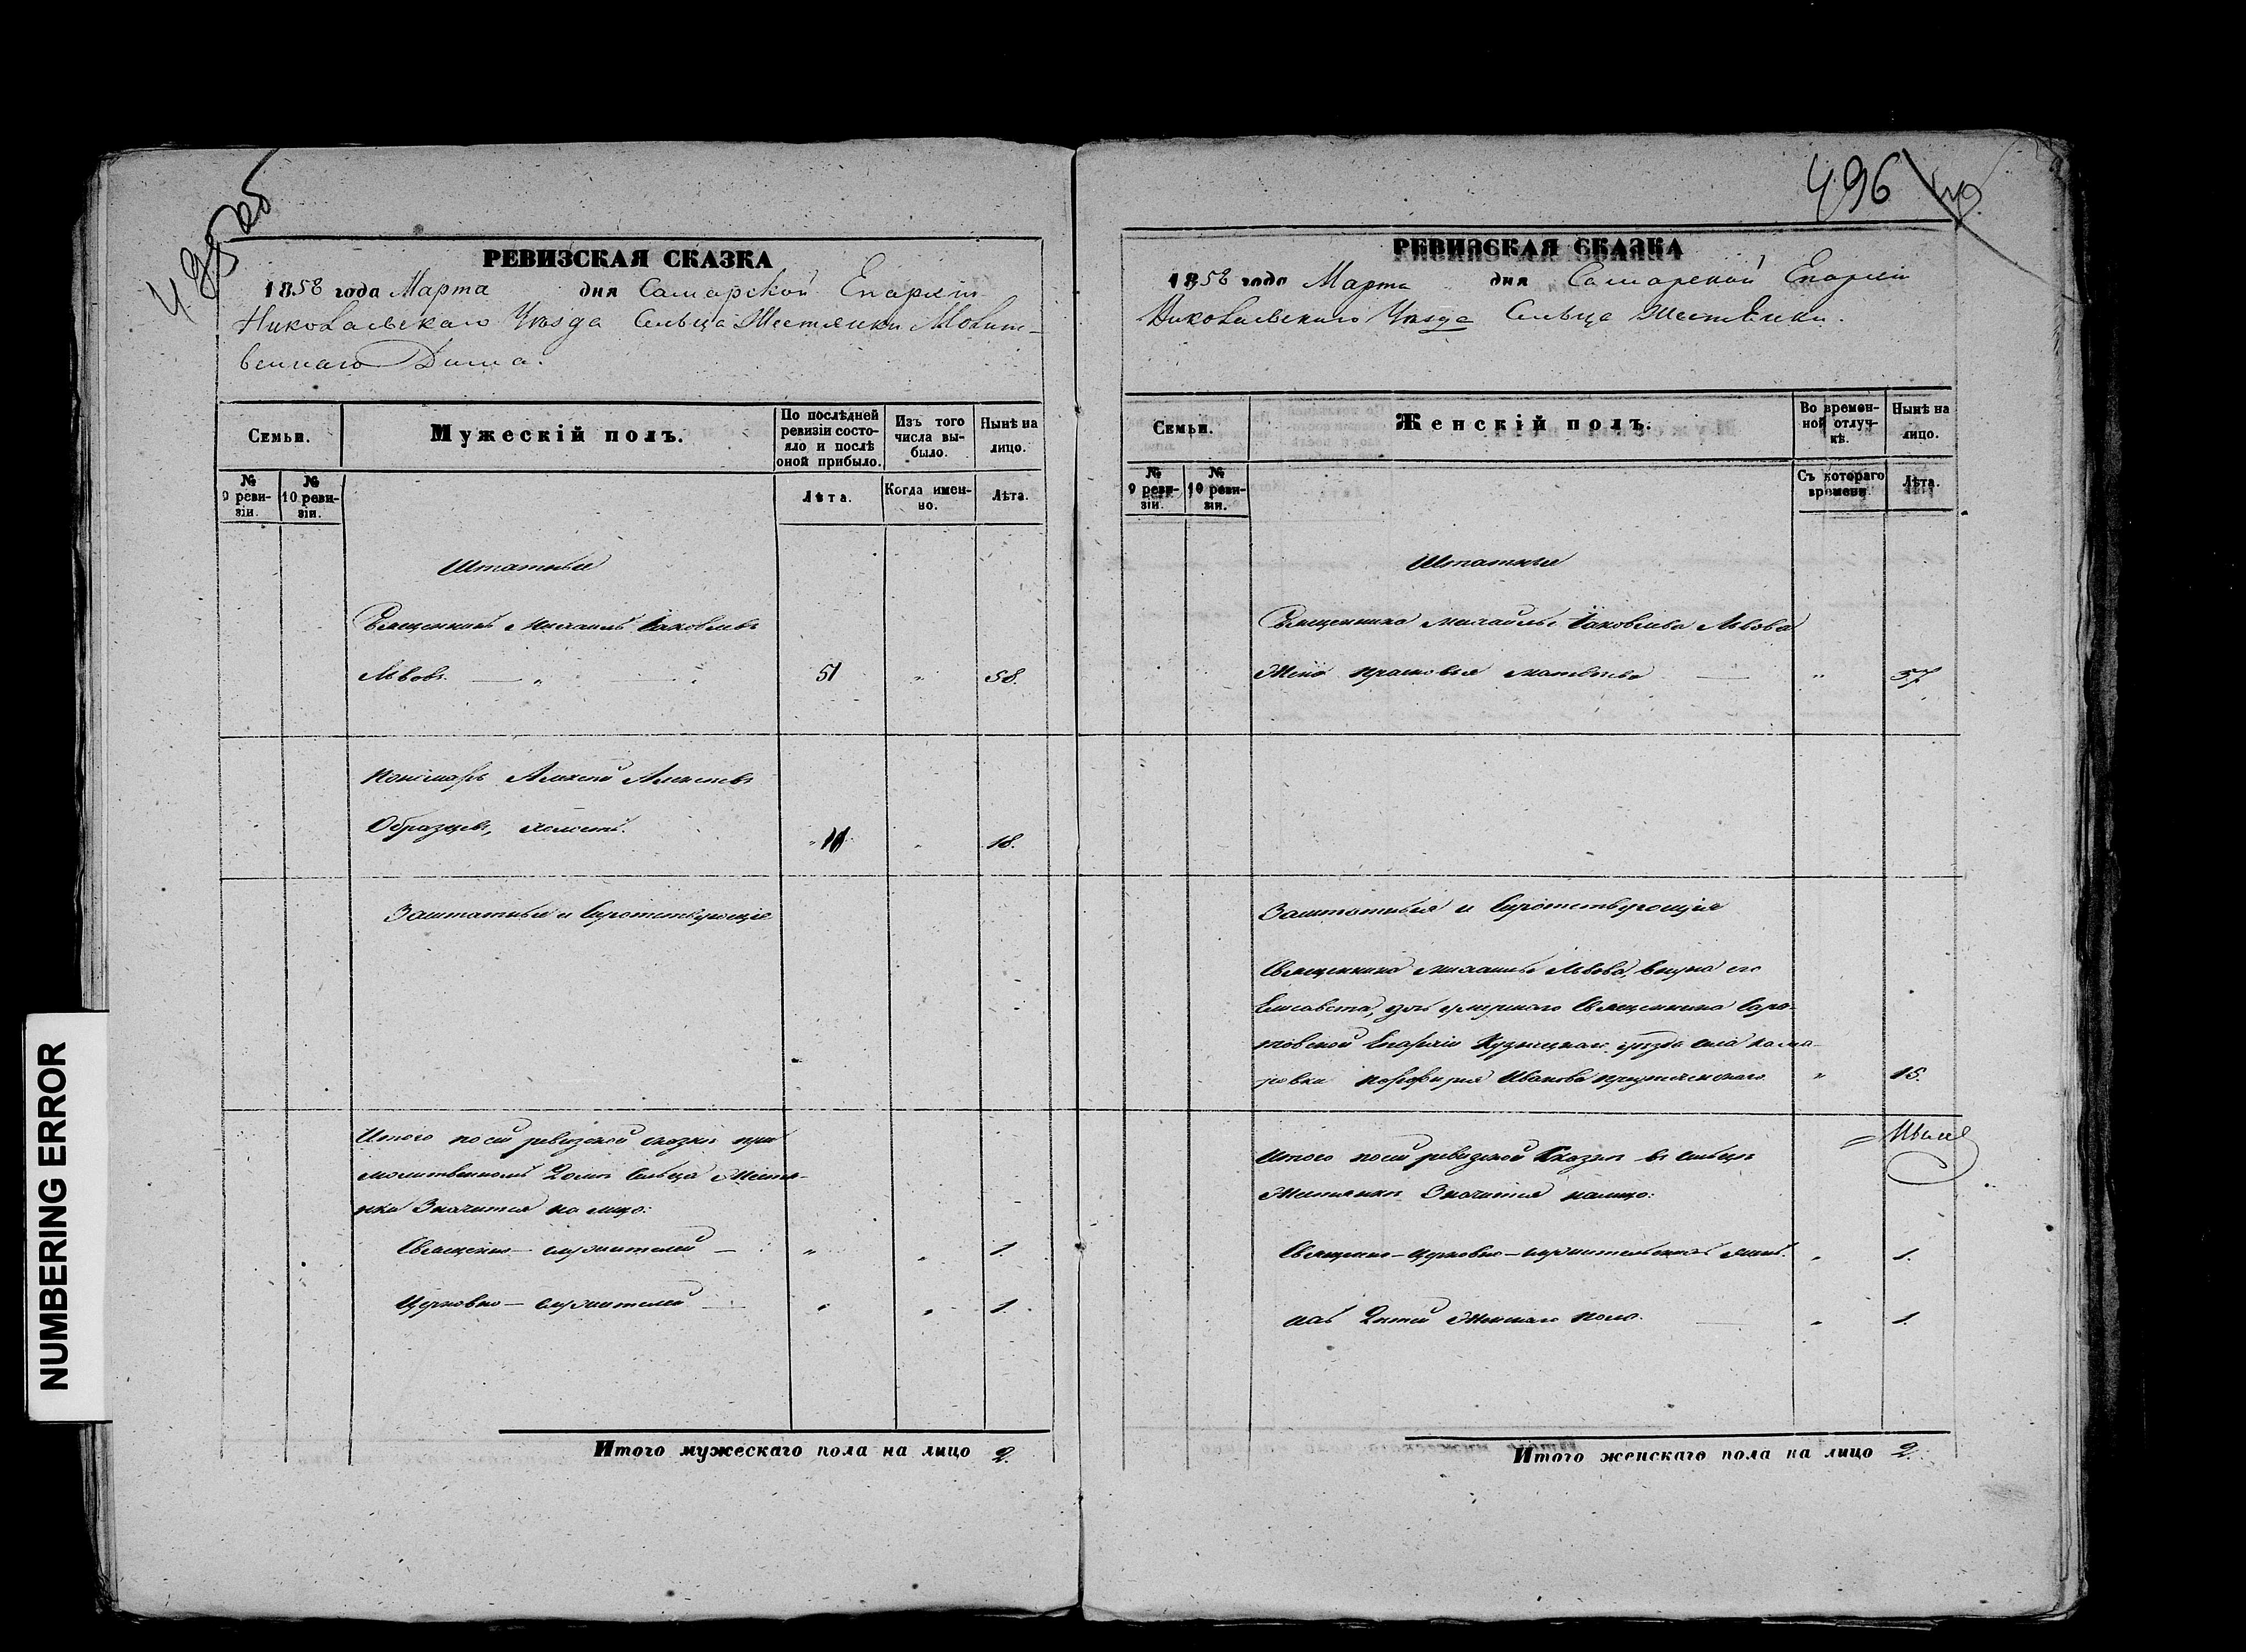 NUMBERING ERROR
495 об
РЕВИЗСКАЯ СКАЗКА
1858 года Марта дня Самарской Епархіи
Николаевскаго Уѣзда Сельца Шестянки Молит-
веннаго Дома.
Семьи.
Мужескій полъ.
По послѣдней ревизіи состо-
яло и послѣ
оной прибыло.
Изъ того
числа вы-
было.
Нынѣ на
лицо.
№
9 реви-
зіи.
№
10 реви-
зіи.
Лѣта.
Когда имен-
но.
Лѣта.
Штатные
Священникъ Михаилъ Іаковлевъ
Львовъ. 51 58.
Пономарь Алексей Алексѣевъ
Образцевъ, холостъ. 18.
Заштатные и Сиротствующіе
Итого по сей ревизской сказкѣ при
молитвенномъ Домѣ Сельца Шестя-
нки Значится на лицо:
Священно-служителей 1.
Церковно-служителей 1.
Итого мужескаго пола на лицо 2.
496
РЕВИЗСКАЯ СКАЗКА
1858 года Марта дня Самарской Епархіи
Николаевскаго Уѣзда Сельца Шестянки.
Семьи.
Женскій полъ.
Во времен-
ной отлуч-
кѣ.
Нынѣ на
лицо.
№
9 реви-
зіи.
№
10 реви-
зіи.
Съ котораго
времени.
Лѣта.
Штатные
Священника Михаила Іаковлева Львова
Жена Прасковья Матвѣева 37.
Заштатныя и Сиротствующія
Священника Михаила Львова, внука его
Елисавета, дочь умершаго Священника Сара-
товской Епархіи Кузнецкаго уѣзда села
Порфирія Иванова 15.
Итого по сей ревизской Сказкѣ въ Сельцѣ
Шестянкѣ Значится налицо:
Священно-Церковно-служительскихъ женъ. 1.
ихъ Дѣтей Женскаго пола. 1.
Итого женскаго пола на лицо 2.